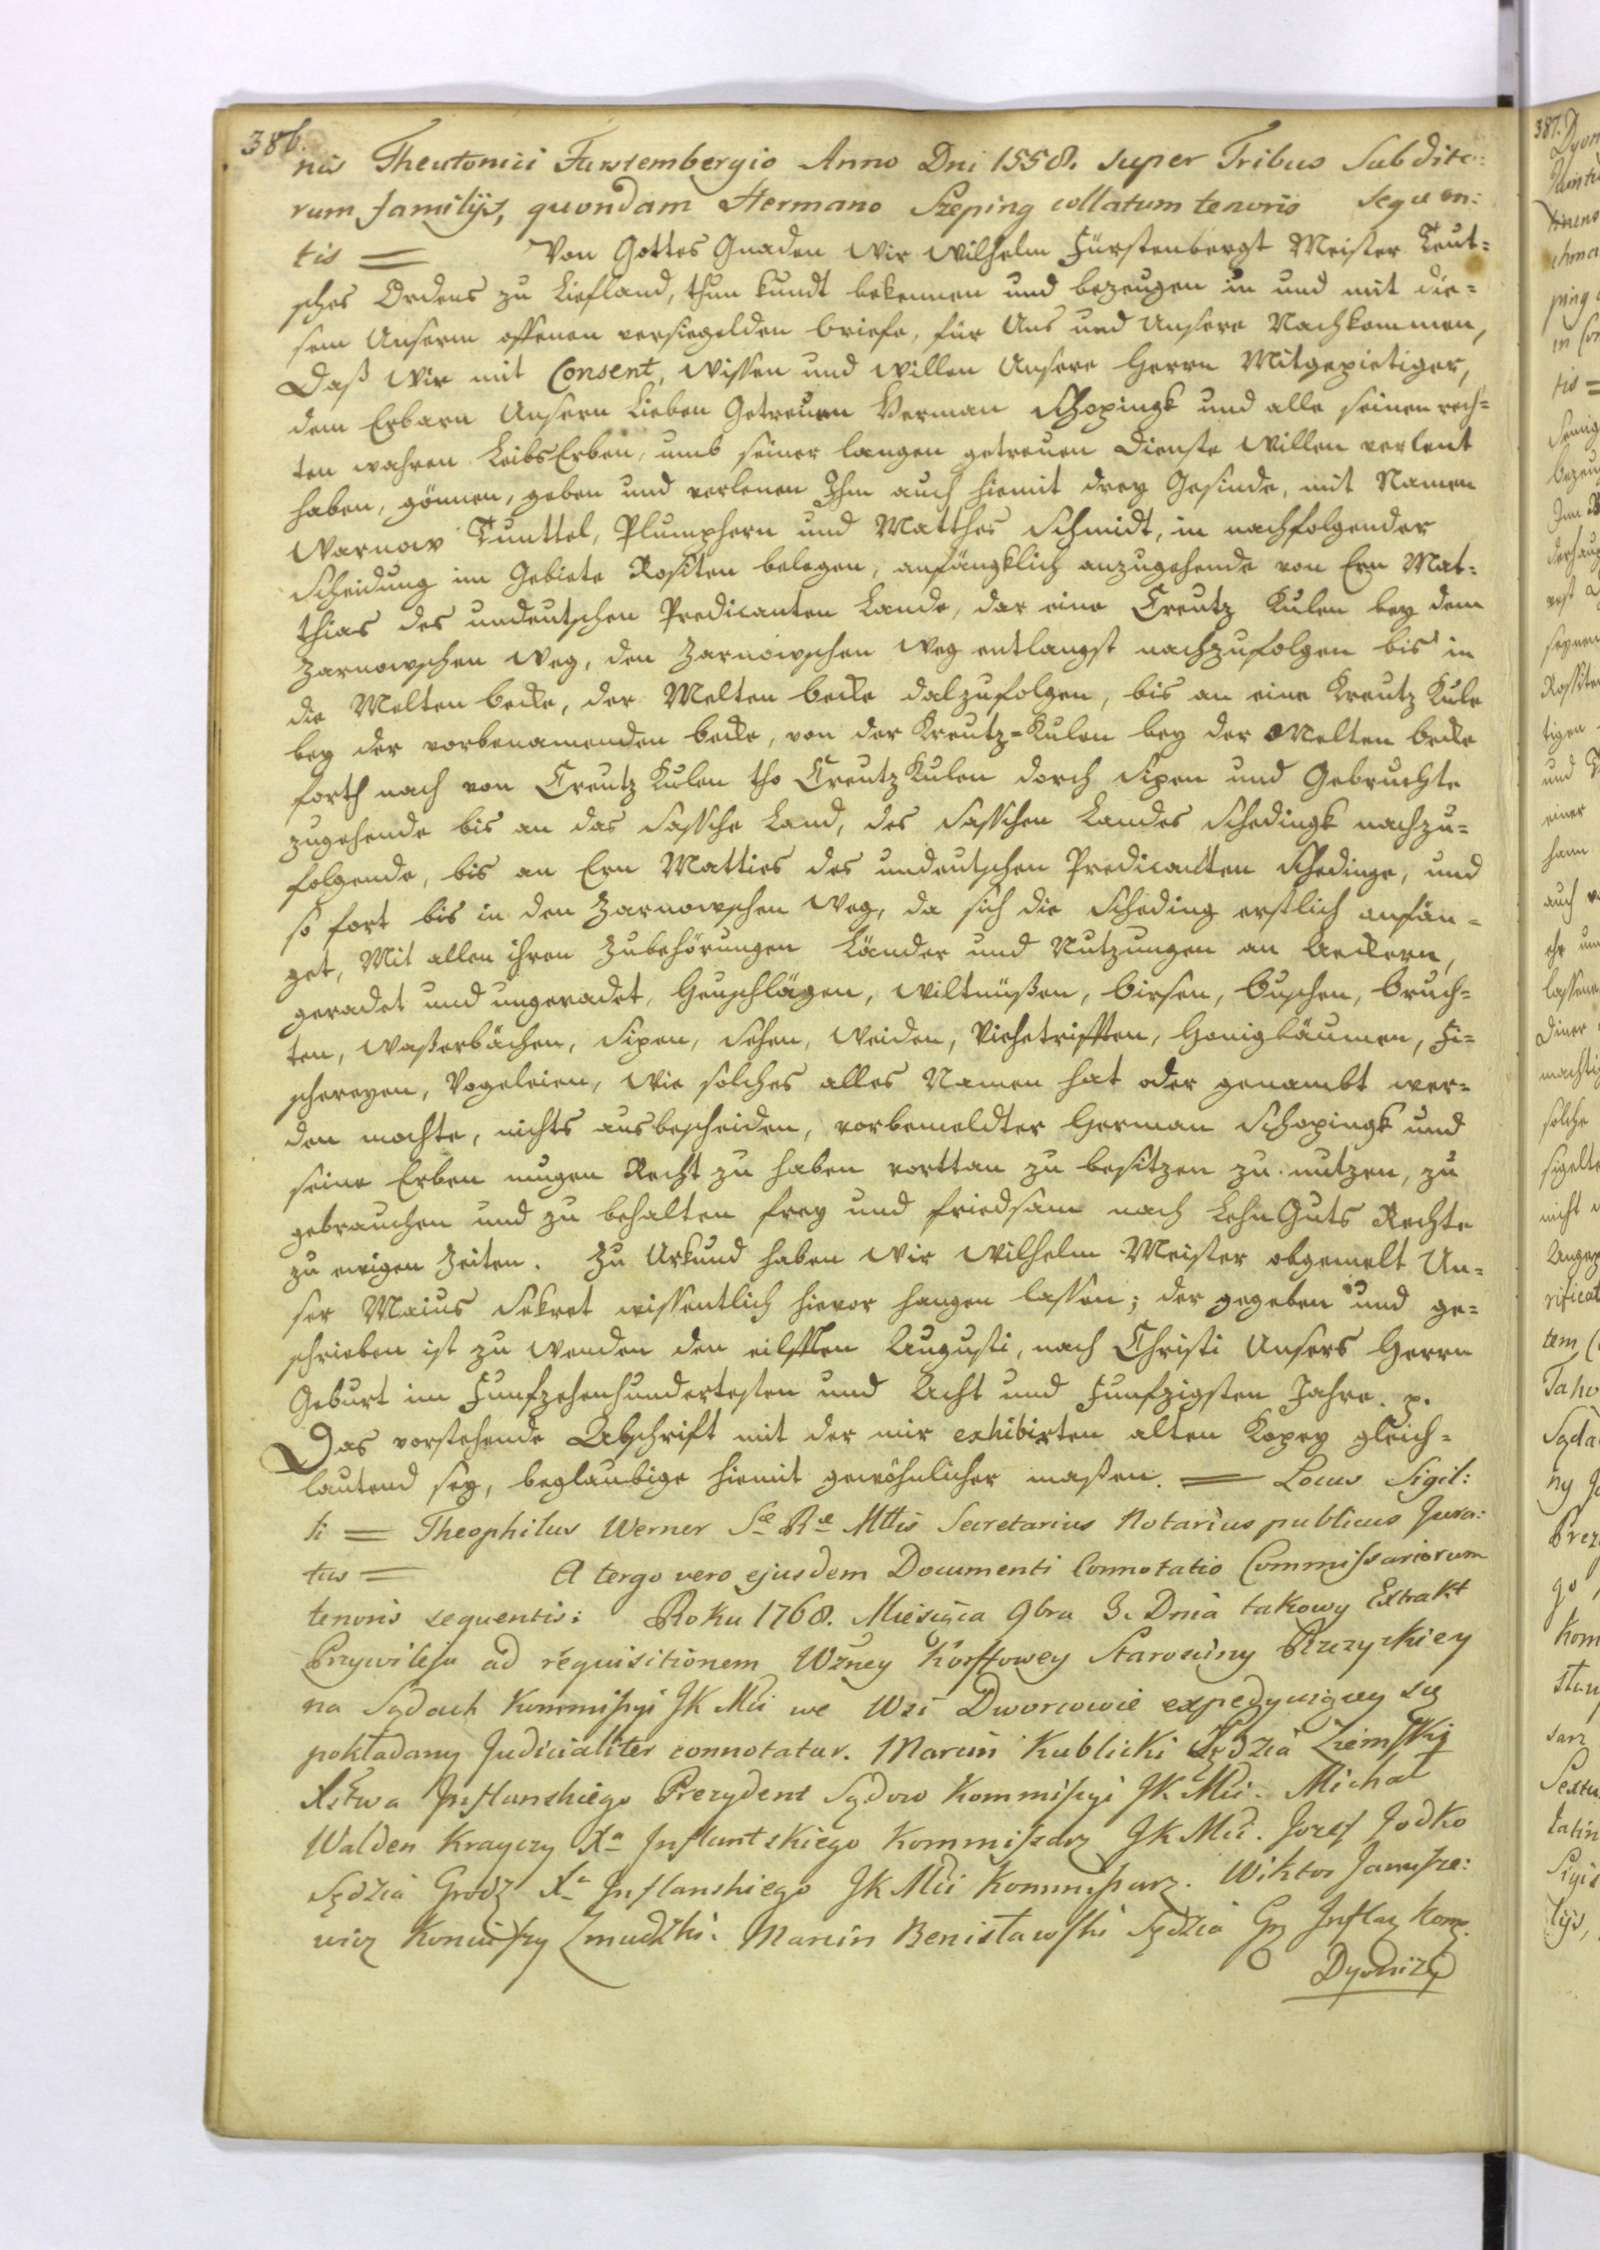 386.
nis Theutonici Furstembergio Anno Dni 1558. super Tribus Subdito:
rum familijs, quondam Hermano Szeping collatum tenoris sequen:
tis = Von Gottes Gnaden Wir Wilhelm Fürstenbergt Meister Teut=
sches Ordens zu Liefland, thun kundt bekennen und bezeugen in und mit die=
sem Unserm offenen versiegelden briefe, für Uns und Unsere Nachkommen,
Daß Wir mit Consent, Wissen und Willen Unsere Herrn Mitgepietiger,
dem Erbarn Unsern Lieben Getreuen Herman Schopingk und alle seinen rech=
ten wahren LeibsErben, umb seiner langen getreuen Dienste Willen verlent
haben, gönnen, geben und verlenen Ihm auch hiemit drey Gesinde, mit Namen
Warnow Tunttel, Plumphern und Matthes Schmidt, in nachfolgender
Scheidung im Gebiete Rositen belegen, anfängklich anzugehende von Ern Mat=
thias des undeutschen Predicanten Lande, dar eine Creutz Kulen bey dem
Zarnowschen Weg, den Zarnowschen Weg entlangst nachzufolgen bis in
die Melten becke, der Melten becke dalzufolgen, bis an eine Kreutz Kule
bey der vorbenamenden becke, von der Kreutz=Kulen bey der Melten becke
forth nach von Creutz Kulen tho Creutz Kulen dorch Sipen und Gebruchte
zugehende bis an das Sassche Land, des Sasschen Landes Schedingk nachzu=
folgende, bis an Ern Matties des undeutschen Predicanten Schedinge, und
so fort bis in den Zarnowschen Weg, da sich die Scheding erstlich anfän=
get, Mit allen ihren Zubehörungen Länder und Nutzungen an Aeckern,
geradet und ungeradet, Heuschlägen, Wiltnüßen, birsen, buschen, bruch=
ten, Waßerbächen, Sipen, Sehen, Weiden, Viehetrifften, Honigbäumen, Fi=
schereyen, Vogeleien, Wie solches alles Namen hat oder genambt wer=
den mochte, nichts ausbescheiden, vorbemeldter Herman Schopingk und
seine Erben mugen Recht zu haben vorttan zu besitzen zu nutzen, zu
gebrauchen und zu behalten frey und friedsam nach LehnGuts Rechte
zu ewigen Zeiten. Zu Urkund haben Wir Wilhelm Meister obgemelt Un=
ser Maius Sekret wissentlich hievor hangen lassen; der gegeben und ge=
schrieben ist zu Wenden den eilfften Augusti, nach Christi Unsers Herrn
Geburt im Funfzehenhundertesten und Acht und Funfzigsten Jahre. p.
Das vorstehende Abschrift mit der mir exhibirten alten Kopey gleich=
lautend sey, beglaubige hiemit gewöhnlicher maßen. = Locus Sigil:
li = Theophilus Werner Sæ Ræ Mttis Secretarius Notarius publicus Jura:
tus = A tergo vero ejusdem Documenti Connotatio Commissariorum
tenoris sequentis: Roku 1768. Miesiąca 9bra 3. Dnia takowy Extrakt
Przywileju ad requisitionem Wżney Korffowey Starosciny Rzezyckiey
na Sądach Kommissyi JK Mci we Wsi Dworcowie expedyuiącey się
pokładany Judicialiter connotatur. Marcin Kublicki Sędzia Ziemski
Xstwa Inflanskiego Prezydent Sądow Kommissyi JK Mci. Michał
Walden Krayczy Xa Inflantskiego Kommisarz JK Mci. Jozef Jodko
Sędzia Grodz Xa Inflanskiego JK Mci Kommissarz. Wiktor Janusze:
wicz Koniuszy Zmudzki. Marcin Benisławski Sędzia Gr Inflan Kom.
Dyonizy